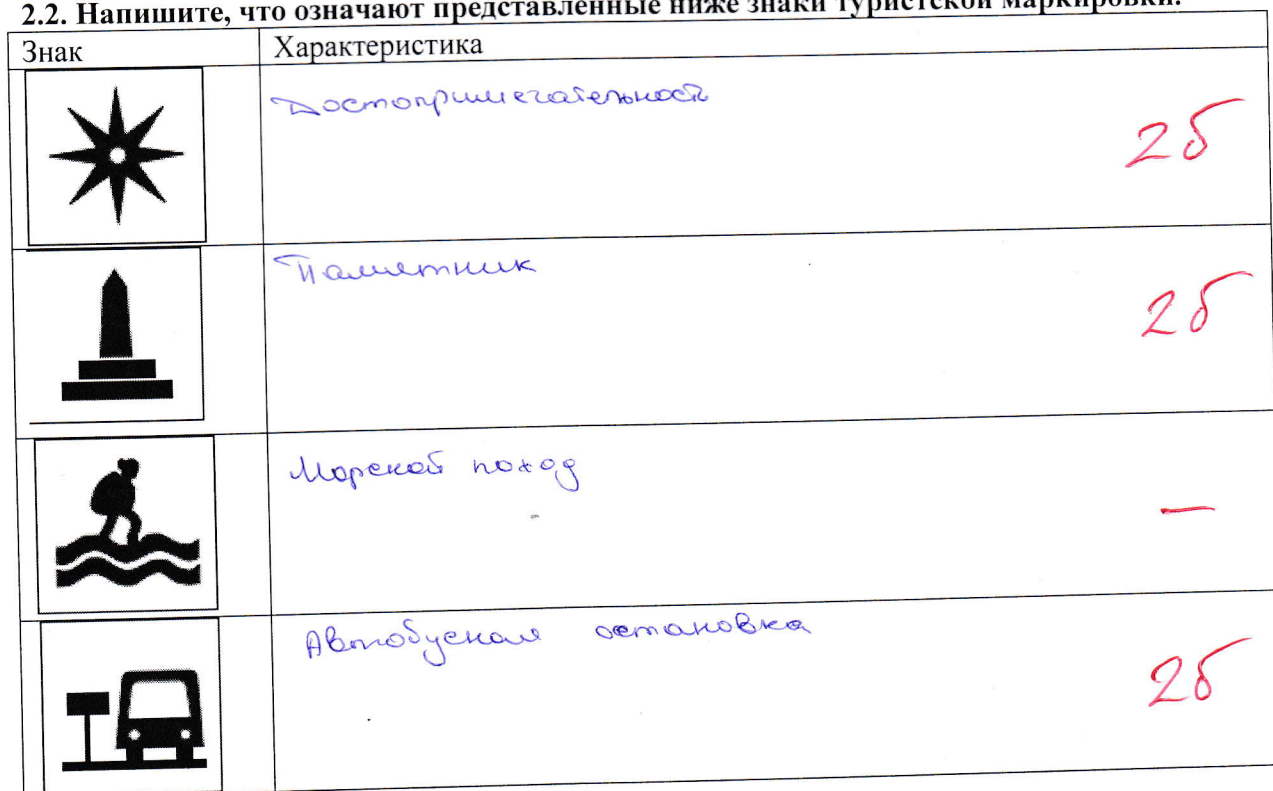 2.2. Напишите, что означают представленные ниже знаки туристской маркировки.
Знак Характеристика
Достопримечательность
2б
Памятник
2б
Морской поход
—
Автобусная остановка
2б